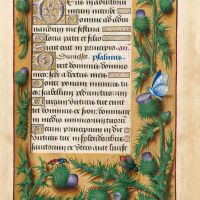 Deus in adiutorium
meum intende
Domine ad adiu
uandum me festina
Gloria patri et filio
Sicut erat in principio an
psalmus
Dixit dominus domino
meo sede a dextris meis
Donec ponam inimicos tu
os scabellum pedum tuorum
Virgam virtutis tue emit
tet dominus ex syon domi
nare in medio inimicorum
tuorum
Tecum principium in die
virtutis tue in splendoribus
sanctorum ex utero ante lucife